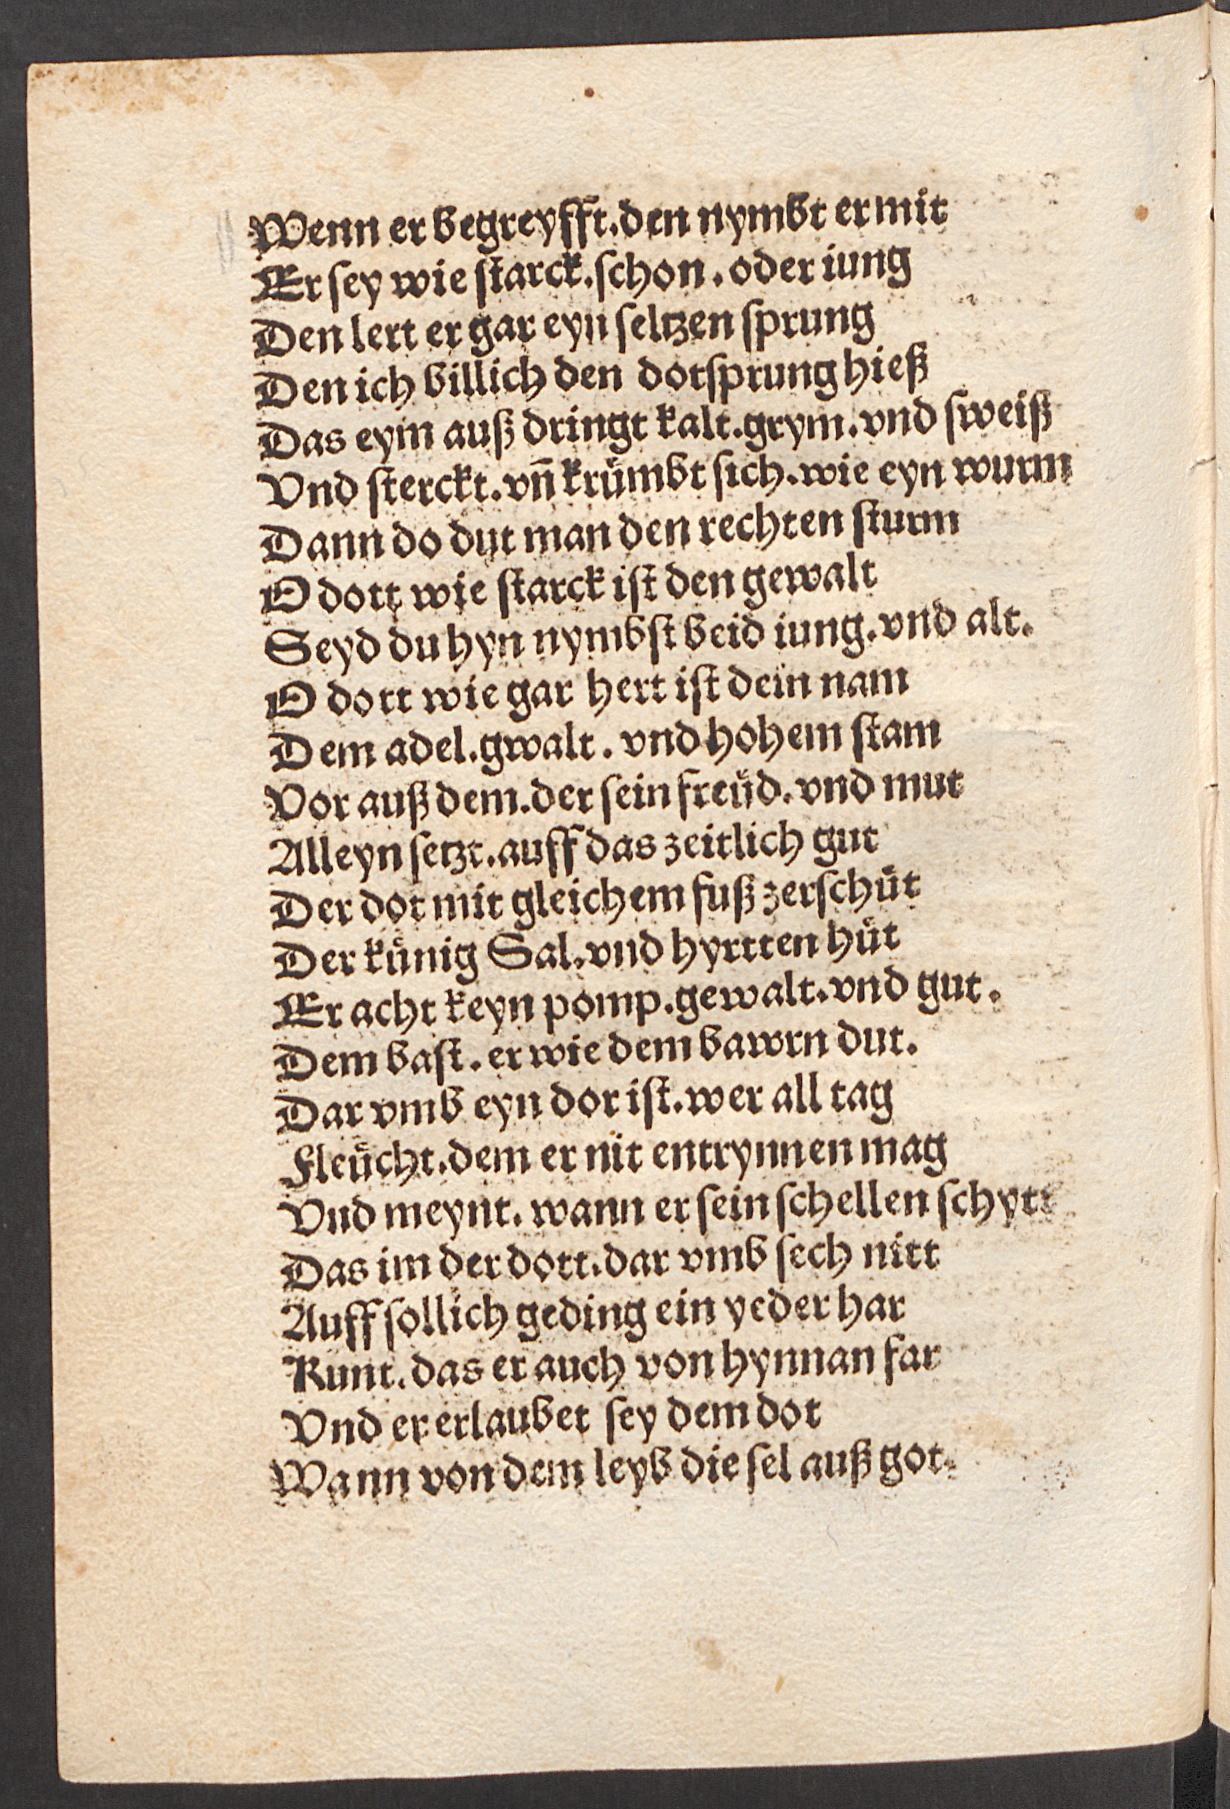 Wenn er begreyfft.den nymbt er mit
Er sey wie starck.schon.oder iung
Den lert er gar eyn seltzen sprung
Den ich billich den dotsprung hieß
Das eym auß dringt kalt.grym.vnd sweiß
Vnd sterckt.vn̄ krümbt sich.wie eyn wurm
Dann do dut man den rechten sturm
O dott wie starck ist den gewalt
Seyd du hyn nymbst beid iung.vnd alt.
O dott wie gar hert ist dein nam
Dem adel.gwalt.vnd hohem stam
Vor auß dem.der sein freüd.vnd mut
Alleyn setzt.auff das zeitlich gut
Der dot mit gleichem fuß zerschüt
Der künig Sal.vnd hyrtten hüt
Er acht keyn pomp.gewalt.vnd gut.
Dem bast.er wie dem bawrn dut.
Dar vmb eyn dor ist.wer all tag
Fleücht.dem er nit entrynnen mag
Vnd meynt.wann er sein schellen schytt
Das im der dott.dar vmb sech nitt
Auff sollich geding ein yeder har
Kunt.das er auch von hynnan far
Vnd er erlaubet sey dem dot
Wann von dem leyb die sel auß got.